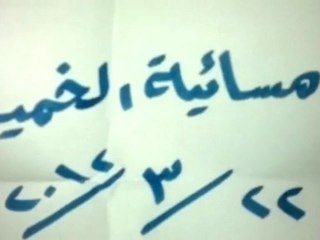 مسائية الخميـ
٢٢ / ٣ / ٢٠١٢